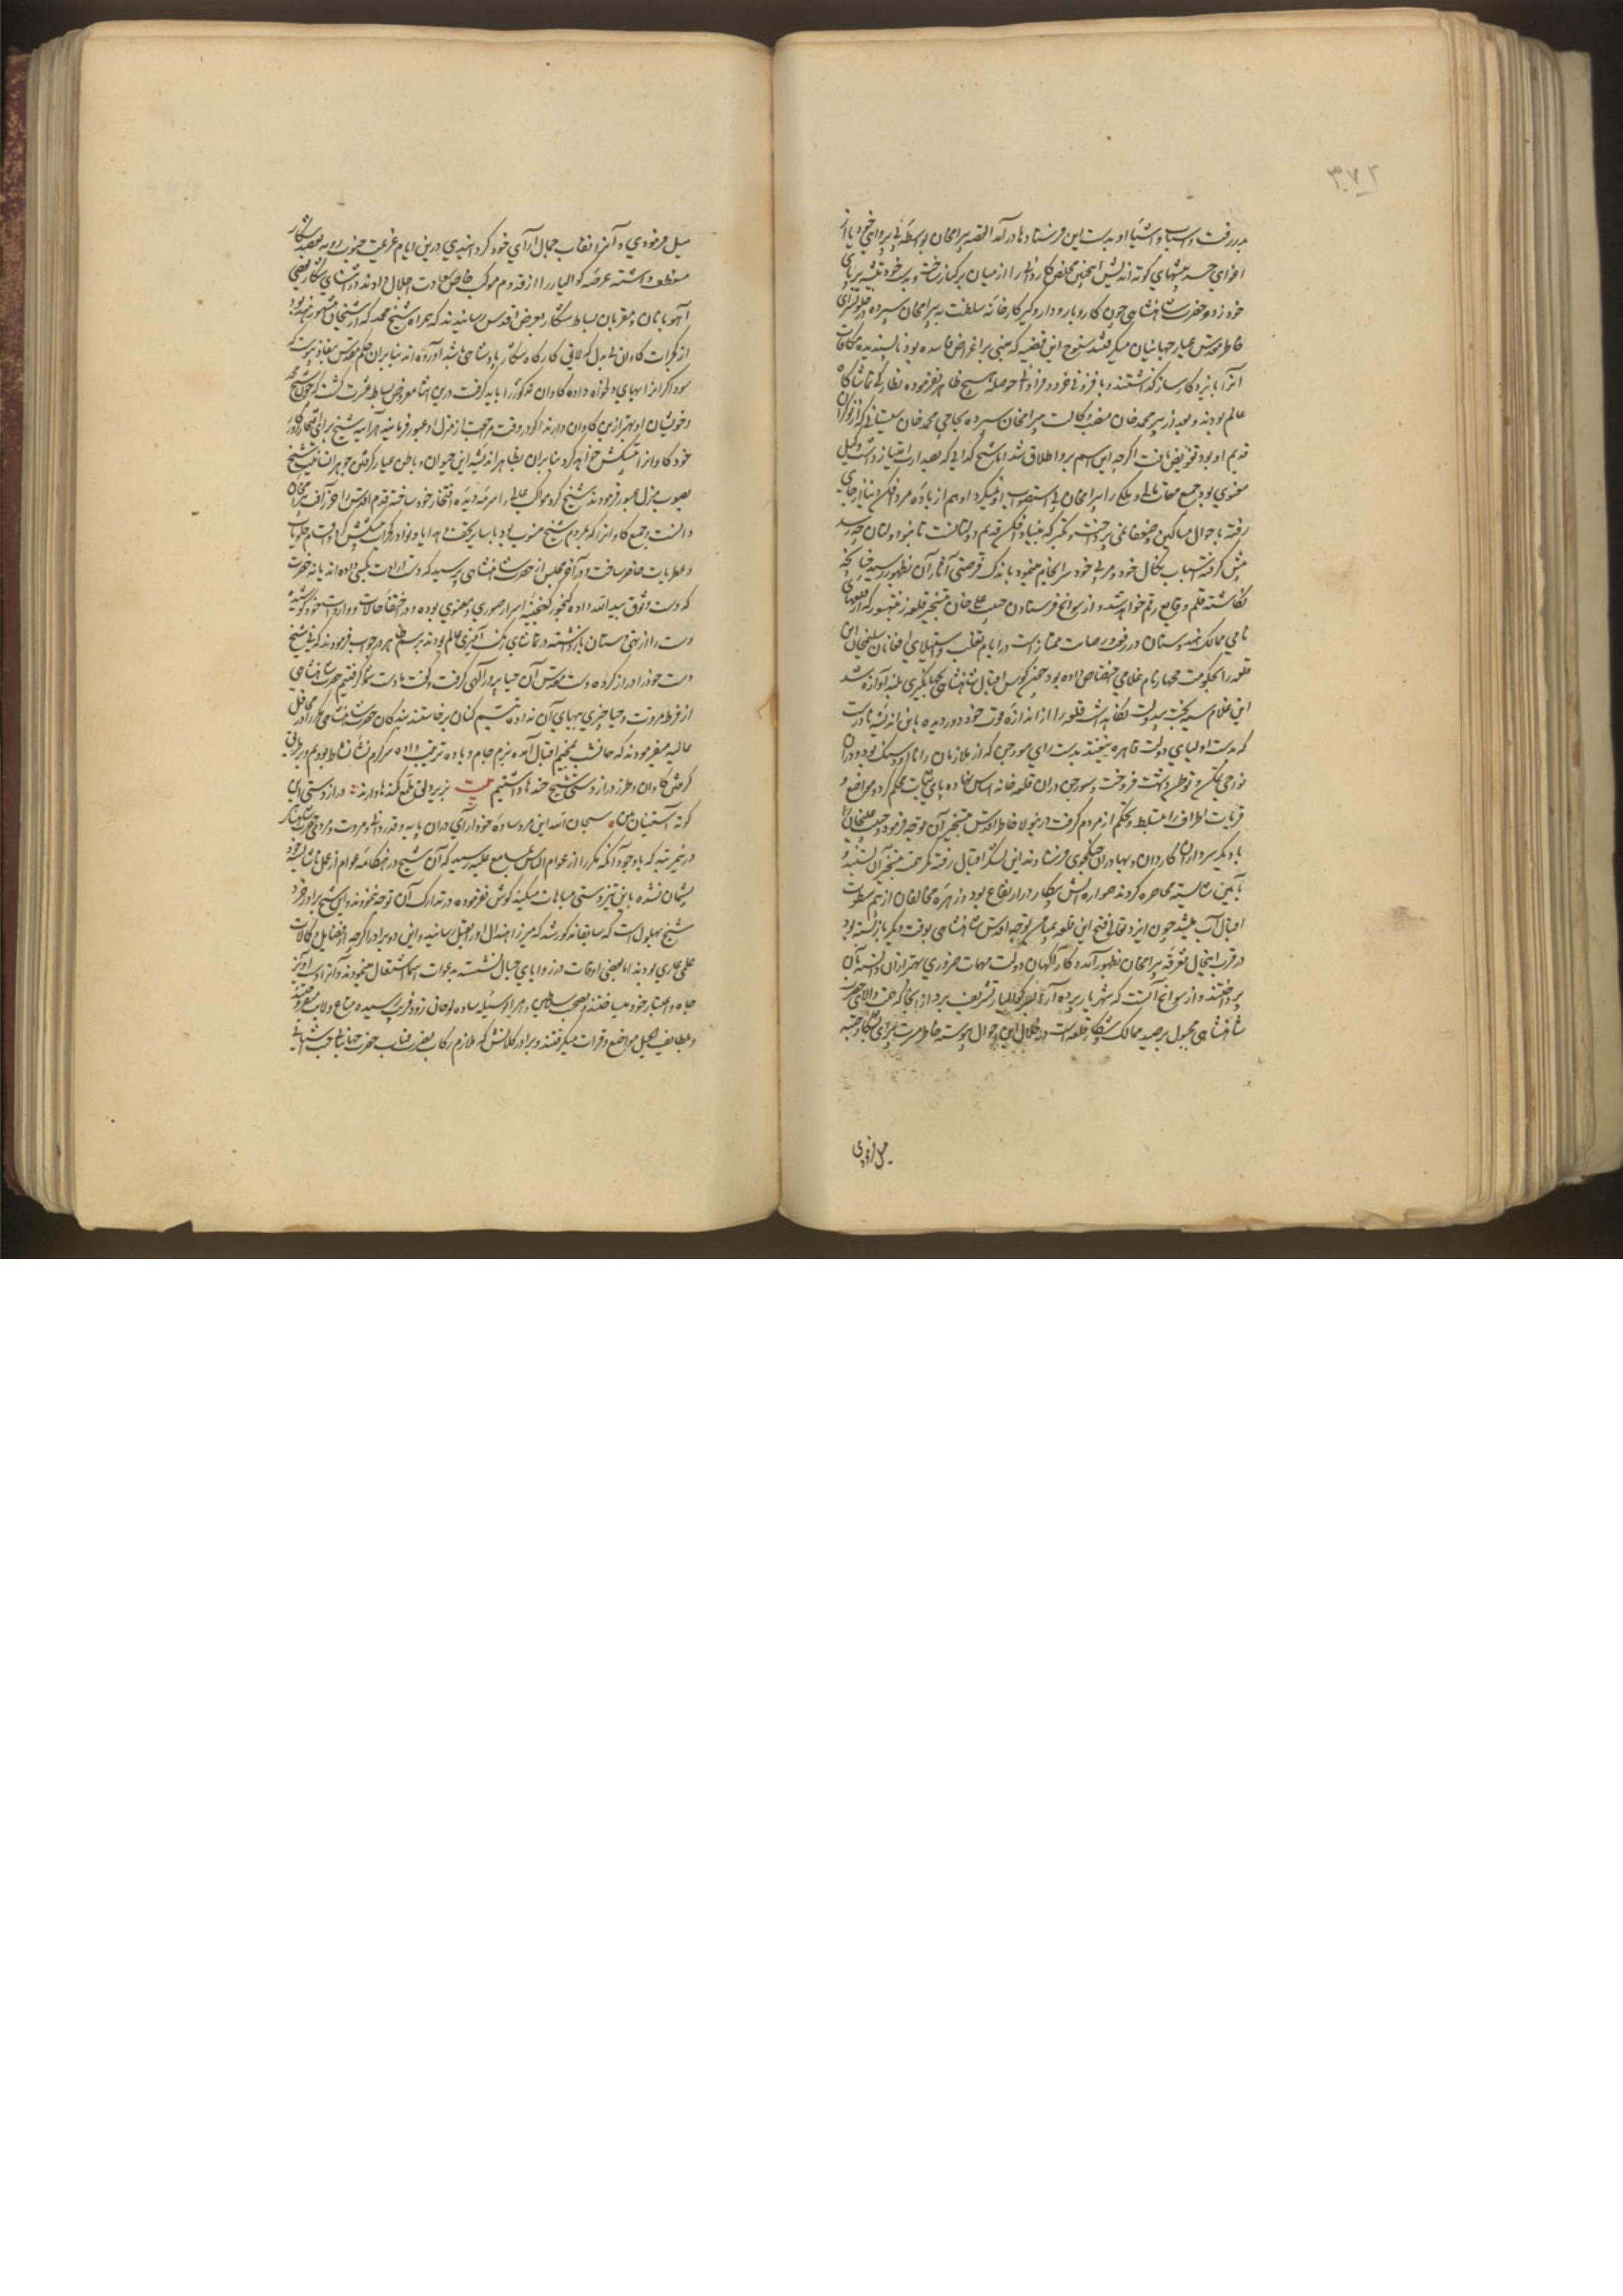 ۳۷۲
بدر رفت و اسباب و اشیاء او بدست این فرستادها در آمد القصه بیرامخان بواسطه بی پروائی خود یا از
اغوای حسد پیشهای کوته اندیش اینچنین مخلص کاردانی را از میان برکنار ساخت و بدست خود تیشه بر پای
خود زد و حضرت شاهنشاهی چون کار و بار و دار و گیر کارخانه سلطنت به بیرامخان سپرده در جلوه سرای
خاطر مقدس عیار جهانیان میگرفتند سنوح این قضیه که مبنی بر اغراض فاسده بود ناپسندیده مکافات
آنرا بایزد کارساز گذاشتند و با فزونی خرد و فراوانی حوصله هیچ ظاهر نفرموده نظارگی تماشاگاه
عالم بودند و بعد از پیر محمد خان منصب وکالت بیرامخان سپرده بحاجی محمد خان سیستانی که از نوکران
قدیم او بود تفویض یافت اگرچه این اسم برو اطلاق شد اما شیخ گدائی که بصدارت امتیاز داشت وکیل
معنوی بود جمیع معاملات مالی و ملکی را بیرامخان بی استصواب او نمیکرد او هم از باده مرد افکن دنیا از جای
رفته باحوال مساکین و ضعفا نمی پرداخت و تکبر که بنیاد افکن قدیم دولتانست تا بنو دولتان چه رسد
پیش گرفته اسباب نکال خود و مربی خود سرانجام مینمود باندک فرصتی آثار آن بظهور رسید چنانچه
نگاشته قلم وقایع رقم خواهد شد و از سوانح فرستادن حبیب علی خان بتسخیر قلعه رنتهنبور که از قلعهای
نامی ممالک هندوستان و در رفعت و رصانت ممتاز است در ایام تغلب و استیلای افغانان سلیمخان این
قلعه را بحکومت جهار نام غلامی اختصاص داده بود چون کوس اقبال شاهنشاهی بجهانگیری بلند آوازه شد
این غلام سیه بخت بیدولت نگاهداشت قلعه را از اندازه قوت خود دور دیده باین اندیشه نادرست
که بدست اولیای دولت قاهره نیفتد بدست رای سورجن که از ملازمان رانا اودیسنگ بود و در آن
نواحی تمکن و توطن داشت فروخت و سورجن در آن قلعه خانه اساس نهاده پای ثبات محکم کرد و مواضع و
قریات اطراف را بتسلط و تحکم از مردم گرفت درینولا خاطر اقدس بتسخیر آن توجه فرمود و حبیب علیخان را
با دیگر سرداران کاردان و بهادران جنگجوی فرستادند این لشکر اقبال رفته کمر همت بتسخیر آن بستند و
بآئین شایسته محاصره کردند همواره آتش پیکار در ارتفاع بود و زهره مخالفان از بیم سطوت
اقبال آب میشد چون ایزد تعالی فتح این قلعه بمیامن توجه اقدس شاهنشاهی بوقت دیگر باز بسته بود
در قرب اینحال تفرقه بیرامخان بظهور آمد و کارآگهان دولت مهمات ضروری بهتر از آن دانسته بآن
پرداختند و از سوانح آنست که شهریار پرده آرا بصوب گوالیار تشریف برد از آنجا که همت والای حضرت
شاهنشاهی مجبول بر صید ممالک و شکار قلعه‌هاست در خلال این احوال پیوسته خاطر مسرت پیرای بشکار چیته
میل فرمودی
میل فرمودی و آنرا نقاب جمال آرای خود گردانیدی درین ایام عزیمت جنوب رویه بقصد شکار
منعطف داشته عرصه گوالیار را از قدوم موکب خاص سعادت جلال دادند در اثنای شکار بعضی
آهوبانان و مقربان بساط شکار بعرض اقدس رسانیدند که همراه شیخ محمد که از شیخان مشهور هند بود
از گجرات گاوان بی بدل که لایق کارگاه شکار پادشاهی باشد آورده اند بنابران حکم مقدس بنفاذ پیوست که
سوداگرانرا بهای دلخواه داده گاوان مذکور را باید گرفت درین اثنا معروض بساط عزت گشت که چون شیخ محمد
و خویشان او بهتر ازین گاوان دارند اگر در وقت مراجعت از منزل او عبور فرمایند هر آینه شیخ برای افتخار روزگار
خود گاوانرا پیشکش خواهد کرد بنابران بظاهر اندیشه این حیوان و بباطن عیار گرفتن جوهر انسانیت شیخ
بصوب منزل عبور فرمودند شیخ گرد موکب عالی را سرمه دیده افتخار خود ساخته قدم اقدس را حرز آفت بیرامخان
دانست و جمیع گاوانرا که بمردم شیخ منسوب بود با سایر تحف و هدایا و نوادر گجرات پیشکش کرد و اقسام حلویات
و عطریات حاضر ساخت و در آخر مجلس از حضرت شاهنشاهی پرسید که دست ارادت بکسی داده اند یا نه حضرت
که دست وثوق بید الله داده گنجور گنجینه اسرار صوری و معنوی بوده و در اختفاء حالات و واردات خود کوشیده
دست را از تهی دستان بازداشته در تماشای رنگ آمیزی عالم بودند برسم ظاهر در جواب فرمودند که نی شیخ
دست خود را دراز کرده دست مقدس آن حیا پرور آگهی گرفت و گفت ما دست شما گرفتیم حضرت شاهنشاهی
از فرط مروت و حیا چیزی ببهای آن نداده تبسم کنان برخاستند بندگان حضرت شاهنشاهی مکرر در محافل
عالیه میفرمودند که همانشب بمخیم اقبال آمده بزم جام و باده ترتیب داده سرگرم نشاء نشاط بودیم و بر یافتن
گرفتن گاوان و طرز دراز دستی شیخ خنده ها داشتیم بیت بزیر دلق ملمع کمندها دارند : دراز دستی این
کوته آستینان بین . سبحان الله این مرد ساده خودآرای در آن پایه و قدردانی و مروت و مردمی حضرت شاهنشاهی
در این مرتبه که با وجود آنکه مکرر از عوام الناس بمسامع علیه رسید که آن شیخ در هنگامه عوام از عمل ناشایسته خود
پشیمان نشده باین تیز دستی مباهات میکند گوش نفرموده در تدارک آن توجه ننمودند و این شیخ برادر خرد
شیخ بهلول است که سابقا مذکور شد که میرزا هندال او را بقتل رسانید و این دو برادر اگرچه از فضایل و کمالات
علمی عاری بودند اما بعضی اوقات در زوایای جبال نشسته بدعوات اسما اشتغال مینمودند و آنرا دست آویز
جاه و اعتبار خود میساختند و بصحبت سلاطین و امرا بوسیله ساده لوحان زود فریب رسیده متاع ولایت میفروختند
و بلطایف الحیل مواضع و قریات میگرفتند و برادر کلانش که ملازم رکاب نصرت قباب حضرت جهانبانی جنت آشیانی